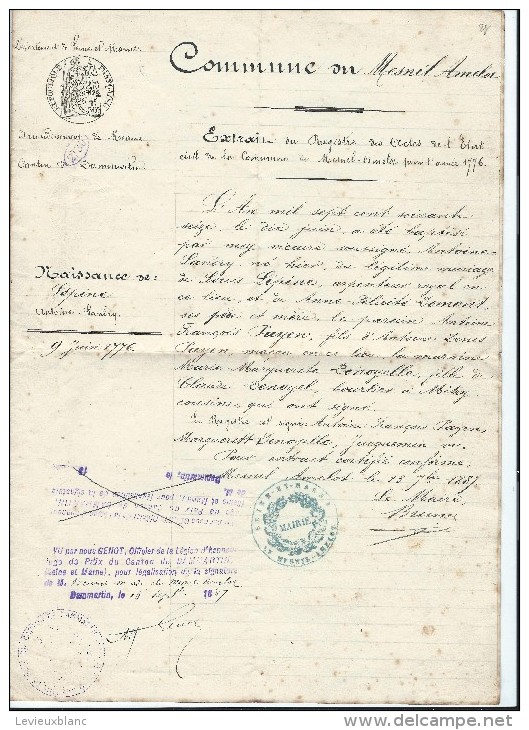 Département de Seine et Marne
Commune du Mesnil Amelot
Arrondissement de Meaux
Canton de Dammartin
Extrait du Registre des Actes de l'Etat
civil de la Commune du Mesnil-Amelot pour l'année 1776.
L'An mil sept cent soixante
seize, le dix juin, a été baptisé
par moy vicaire soussigné Antoine
né hier, du légitime mariage
de Louis Lépine, arpenteur royal en
ce lieu, et de Anne Félicité Demont,
ses père et mère, le parrain Antoine
François Payen, fils d'Antoine Louis
Payen, maçon en ce lieu, la marraine
Marie Marguerite Denoyelle, fille de
Claude Denoyel, bourlier à Mitry
cousins, qui ont signé.
Naissance de:
Lépine
Antoine
9 Juin 1776
Le Registre est signé Antoine François Payen,
Marguerite Denoyelle,
Pour extrait certifié conforme,
Mesnil Amelot le 13 7bre 1887
Le Maire
MAIRIE
VU par nous GENOT, Officier de la Légion d'honneur
Juge de Paix du Canton de DAMMARTIN,
(Seine et Marne), pour légalisation de la signature
de M.
Dammartin, le 14 1887
Genot
Levieuxblanc
www.delcampe.net